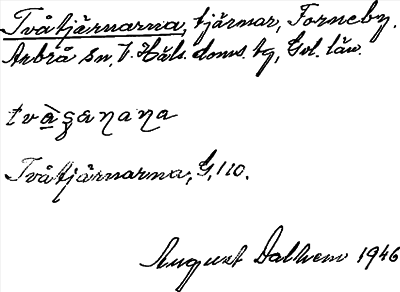 Tvåtjärnarna, tjärnar, Forneby.
Arbrå sn, V. Häls. doms. tg, Gvl. län.
tvàʒaɳaɳa
Tvåtjärnarna, G, 110.
August Dalhem 1946